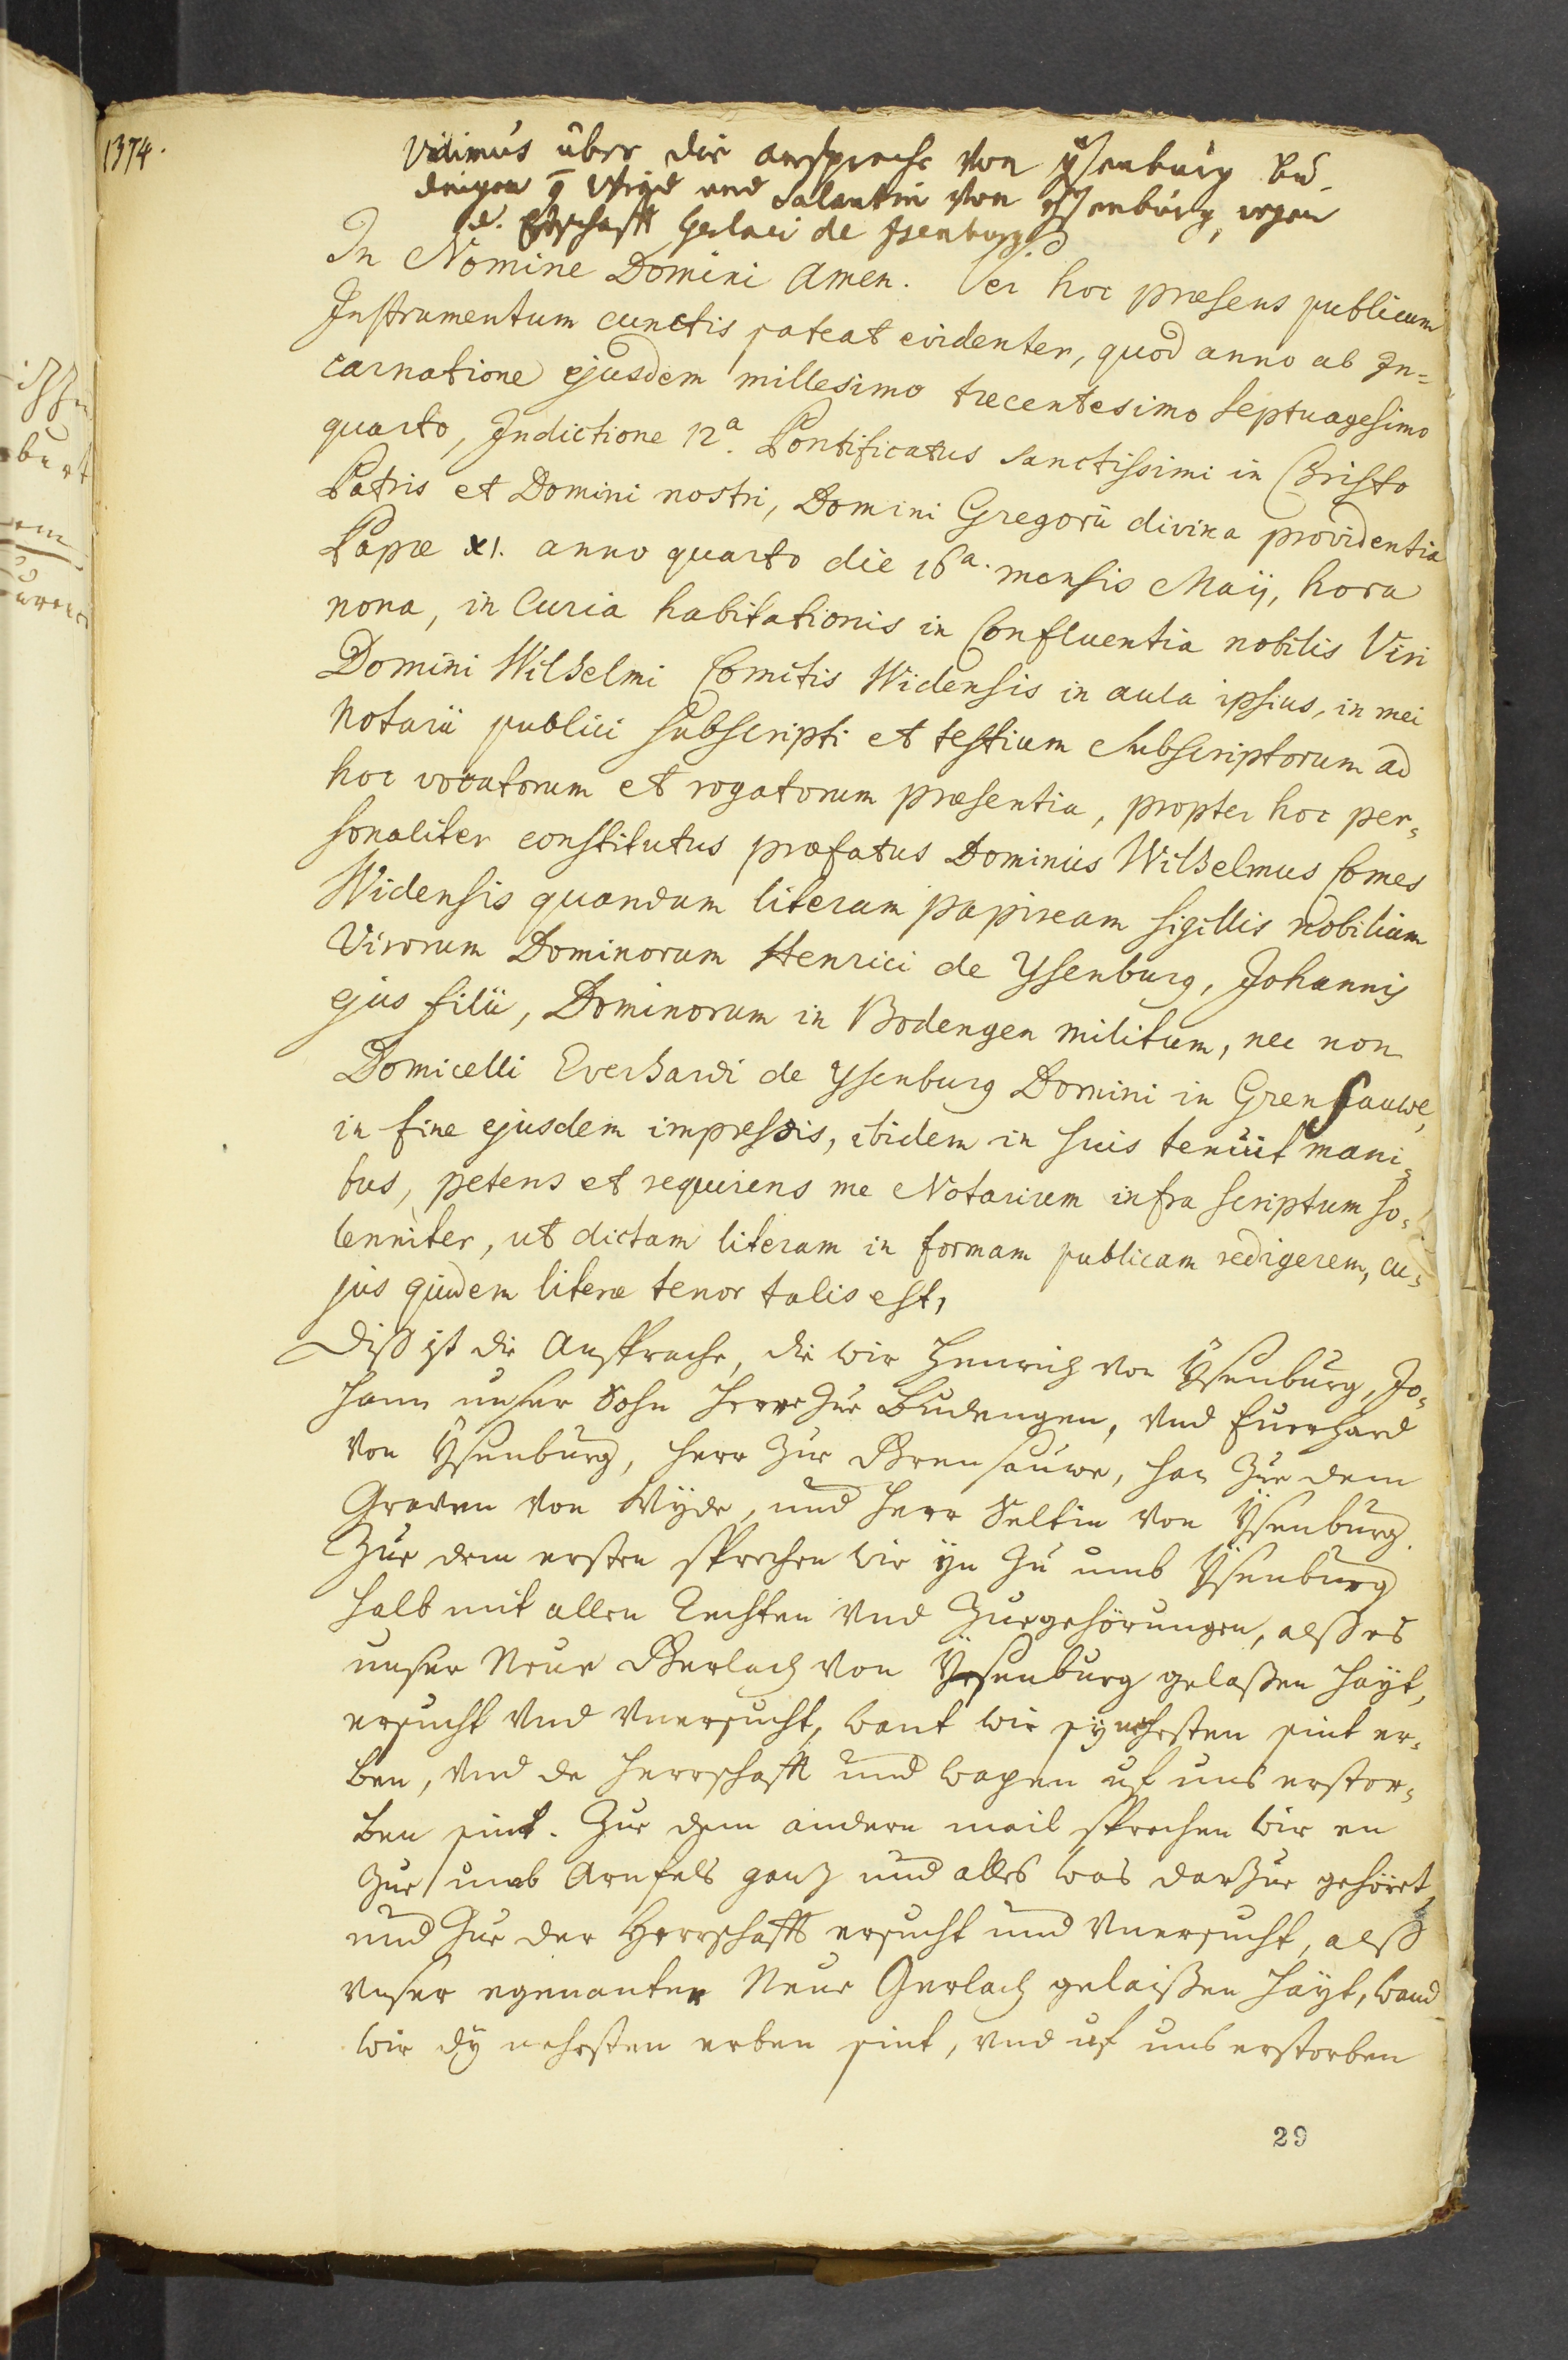 1374.
Vidimus über die ansprache von Ysenburg Bü-
dingen Wied und Salentin von Ysenburg, wegen
d. Erbschafft Gerlaci de Isenburg
In Nomine Domini Amen. Per hoc præsens publicum
Instrumentum cunctis pateat evidenter, quod anno ab In=
carnatione ejusdem millesimo trecentesimo septuagesimo
quarto, Indictione 12ª. Pontificatus sanctissimi in Christo
Patris et Domini nostri, Domini Gregorii divina providentia
Papæ XI. anno quarto die 16ª. mensis Maij, hora
nona, in Curia habitationis in Confluentia nobilis Viri
Domini Wilhelmi Comitis Widensis in aula ipsius, in mei
Notarii publici subscripti et testium subscriptorum ad
hoc vocatorum et rogatorum præsentia, propter hoc per=
sonaliter constitutus præfatus Dominus Wilhelmus Comes
Widensis quandam literam papiream sigillis nobilium
Virorum Dominorum Henrici de Ysenburg, Johannis
ejus filii, Dominorum in Bodengen militum, nec non
Domicelli Everhardi de Ysenburg Domini in Grensauwe,
in fine ejusdem impressis, ibidem in suis tenuit mani=
bus, petens et requirens me Notarium infra scriptum so=
lenniter, ut dictam literam in formam publicam redigerem, cu=
jus quidem literæ tenor talis est,
Diß ist die Ansprache, die wir Henrich von Ÿsenburg, Jo=
hann unser Sohn Herre zur Büdengen, vnd Euerhard
von Ÿsenburg, Herr zur Grensauwe, han zur dem
Graven von Wÿde, und Herr Seltin von Ÿsenburg.
Zur dem ersten sprechen wir ÿn zu umb Ÿsenburg
halb mit allen Rechten vnd Zurgehörungen, alß es
unser Neue Gerlach von Ÿsenburg gelaßen haÿt,
ersucht vnd vnersucht, want wir sÿ nehesten sint er=
ben, vnd de Herrschafft und wapen uf uns erstor=
ben sint. Zur dem andern mail sprechen wir en
zur umb Arnfels ganz und alles was darzur gehöret,
und zur der Herrschafft ersucht und vnersucht, alß
vnser egenanter Neue Gerlach gelaißen haÿt, wand
wir dÿ nehesten erben sint, vnd uf uns erstorben
29